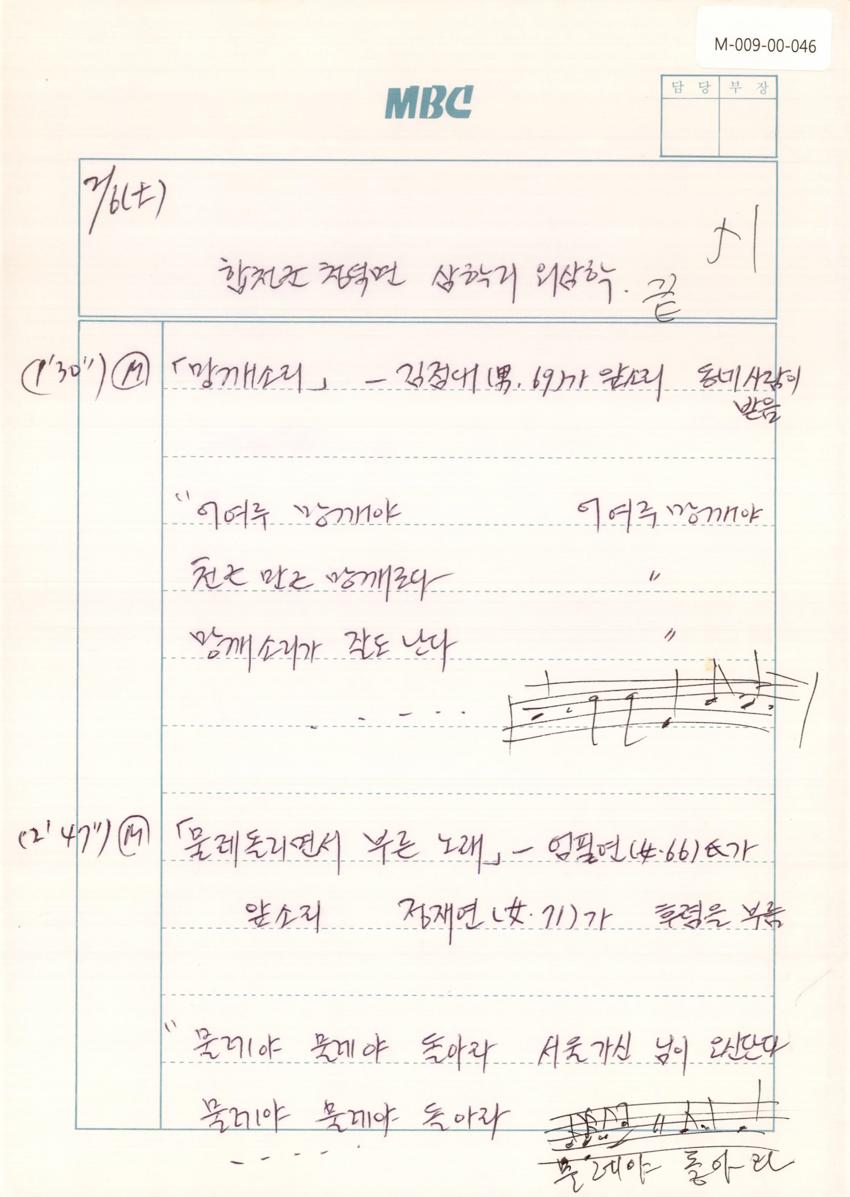 M-009-00-046
MBC
담 당 부 장
2/6(土)
합천군 청덕면 삼학리 외삼학. 끝
(1'30") Ⓜ 「망깨소리」 - 김점대(男. 69)가 앞소리 동네사람이
받음
"어여루 망깨야 어여루 망깨야
천근 만근 망깨로다 〃
망깨소리가 잘도 난다 〃
(2'47") Ⓜ 「물레돌리면서 부른 노래」 - 엄필연(女.66)가
앞소리 정재연(女.71)가 후렴을 부름
"물레야 물레야 돌아라 서울가신 님이 오신단다
물레야 물레야 돌아라
물레야 돌아라